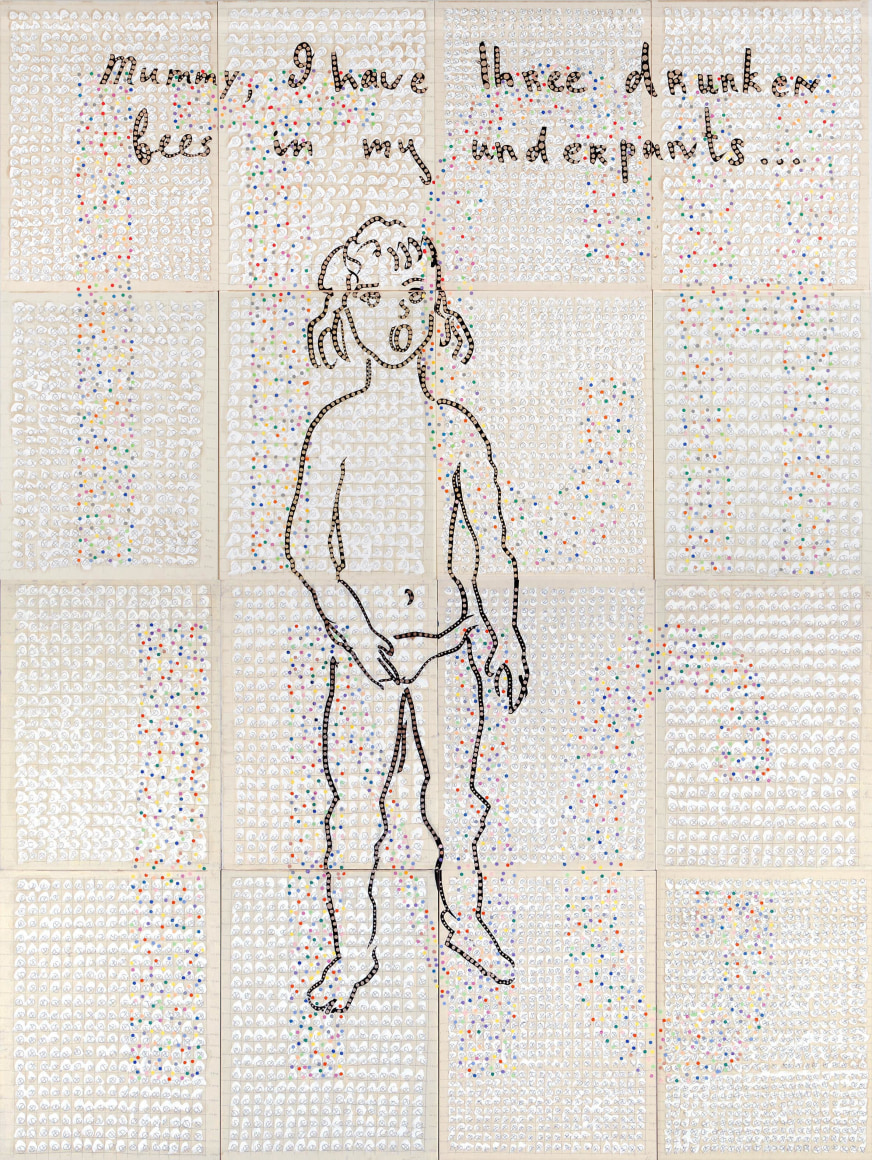 Mummy, I have three drunken
bees in my underpants...
ITCH
ING